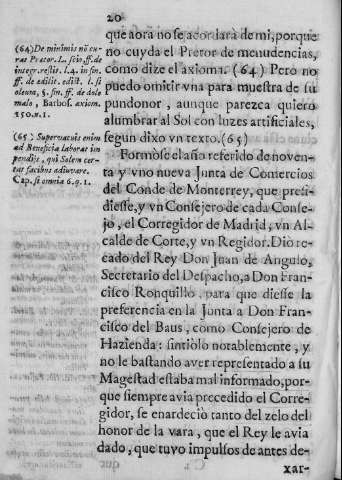 20
que aora no se acordara de mi, porque
no cuyda el Pretor de menudencias,
como dize el axioma. (64) Pero no
puedo omitir vna para muestra de su
pundonor, aunque parezca quiero
alumbrar al Sol con luzes artificiales,
segun dixo vn texto. (65)
Formòse el año referido de noven-
ta y vno nueva Junta de Comercios
del Conde de Monterrey, que presi-
diesse, y vn Consejero de cada Conse-
jo, el Corregidor de Madrid, vn Al-
calde de Corte, y vn Regidor. Diò re-
cado del Rey Don Juan de Angulo,
Secretario del Despacho, a Don Fran-
cisco Ronquillo, para que diesse la
preferencia en la Junta a Don Fran-
cisco del Baus, como Consejero de
Hazienda: sintiòlo notablemente, y
no le bastando aver representado a su
Magestad estaba mal informado, por-
que siempre avia precedido el Corre-
gidor, se enardeciò tanto del zelo del
honor de la vara, que el Rey le avia
dado, que tuvo impulsos de antes de-
xar-
(64) De minimis nõ cu-
rat Pretor. L. scio, ff. de
integr. restit. l. 4. in fin.
ff. de ædilit. edict. l. si
oleum, §. fin. ff. de dolo
malo, Barbos. axiom.
150. n. 1.
(65) Supervacuis enim
ad Beneficia laborat im-
pendijs, qui Solem cer-
tat facibus adiuvare.
Cap. si omnia 6. q. 1.